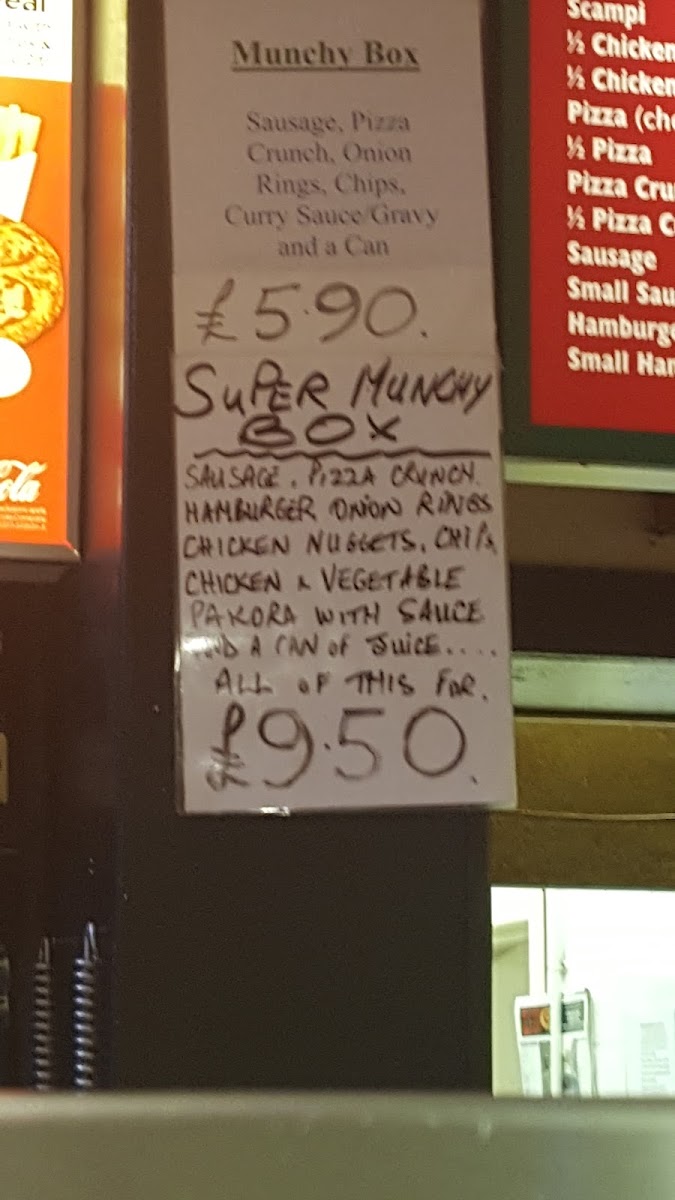 Munchy Box
Sausage, Pizza
Crunch, Onion
Rings, Chips,
Curry Sauce/Gravy
and a Can
£5.90.
SUPER MUNCHY
BOX
SAUSAGE, PIZZA CRUNCH.
HAMBURGER ONION RINGS
CHICKEN NUGGETS, CHIPS
CHICKEN & VEGETABLE
PAKORA WITH SAUCE
AND A CAN OF JUICE....
ALL OF THIS FOR.
£9.50.
Scampi
½ Chicken
½ Chicken
Pizza (che
½ Pizza
Pizza Cru
½ Pizza C
Sausage
Small Sau
Hamburge
Small Ham
eal
ola